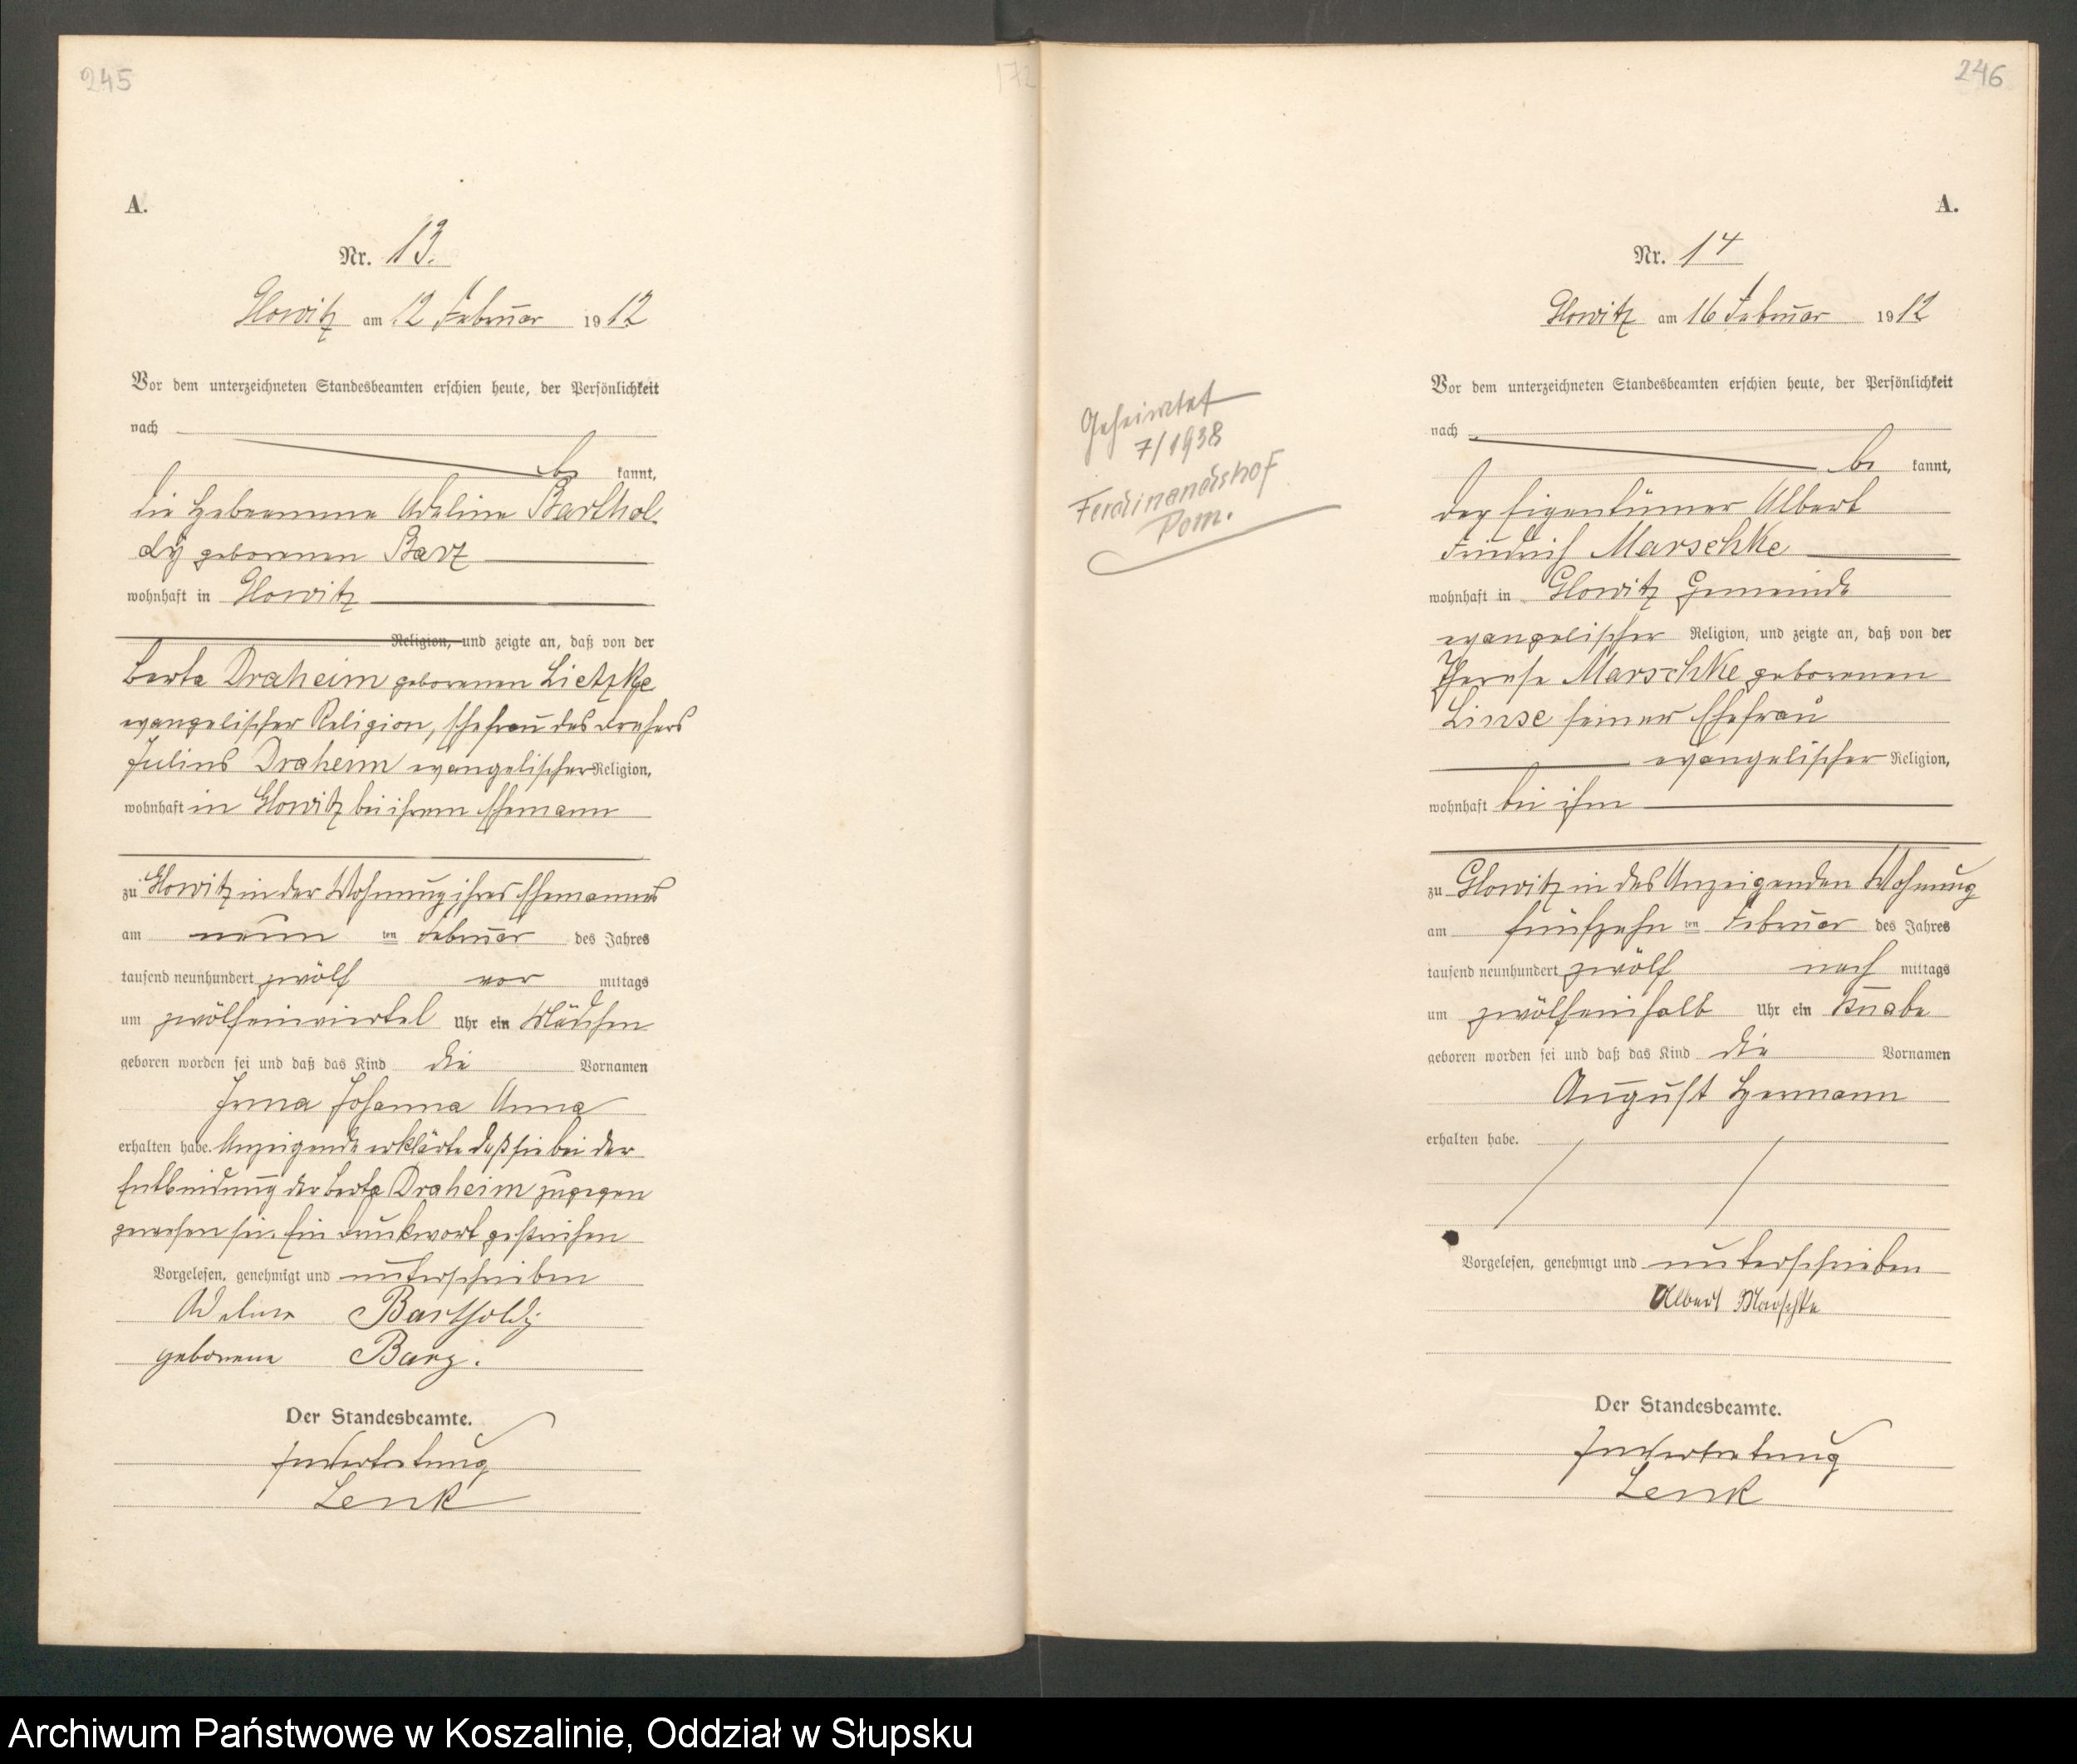 245
A.
Nr. 13.
Glowitz am 12 Februar 1912
Vor dem unterzeichneten Standesbeamten erschien heute, der Persönlichkeit
nach
be kannt,
die Hebeamme Adeline Barthol-
dy geborenen Barz
wohnhaft in Glowitz
Religion, und zeigte an, daß von der
Berta Draheim geborenen Lietzke
evangelischer Religion, Ehefrau des Drehers
Julius Draheim evangelischer Religion,
wohnhaft in Glowitz bei ihrem Ehemann
zu Glowitz in der Wohnung ihres Ehemannes
am neun ten Februar des Jahres
tausend neunhundert zwölf vor mittags
um zwölfeinviertel Uhr ein Mädchen
geboren worden sei und daß das Kind die Vornamen
Irma Johanna Anna
erhalten habe. Anzeigende erklärte daß sie bei der
Entbindung der Berta Draheim zugegen
gewesen sei. Ein Druckwort gestrichen
Vorgelesen, genehmigt und unterschrieben
Adeline Bartholdy
geborene Barz.
Der Standesbeamte.
In Vertretung
Lenk
172
246
A.
Nr. 14
Glowitz am 16 Februar 1912
Geheiratet
7/1938
Ferdinandshof
Pom.
Vor dem unterzeichneten Standesbeamten erschien heute, der Persönlichkeit
nach
be kannt,
der Eigentümer Albert
Friedrich Marschke
wohnhaft in Glowitz Gemeinde
evangelischer Religion, und zeigte an, daß von der
Therese Marschke geborenen
Linse seiner Ehefrau
evangelischer Religion,
wohnhaft bei ihm
zu Glowitz in des Anzeigenden Wohnung
am fünfzehn ten Februar des Jahres
tausend neunhundert zwölf nach mittags
um zwölfeinhalb Uhr ein Knabe
geboren worden sei und daß das Kind die Vornamen
August Hermann
erhalten habe.
Vorgelesen, genehmigt und unterschrieben
Albert Marschke
Der Standesbeamte.
In Vertretung
Lenk
Archiwum Państwowe w Koszalinie, Oddział w Słupsku